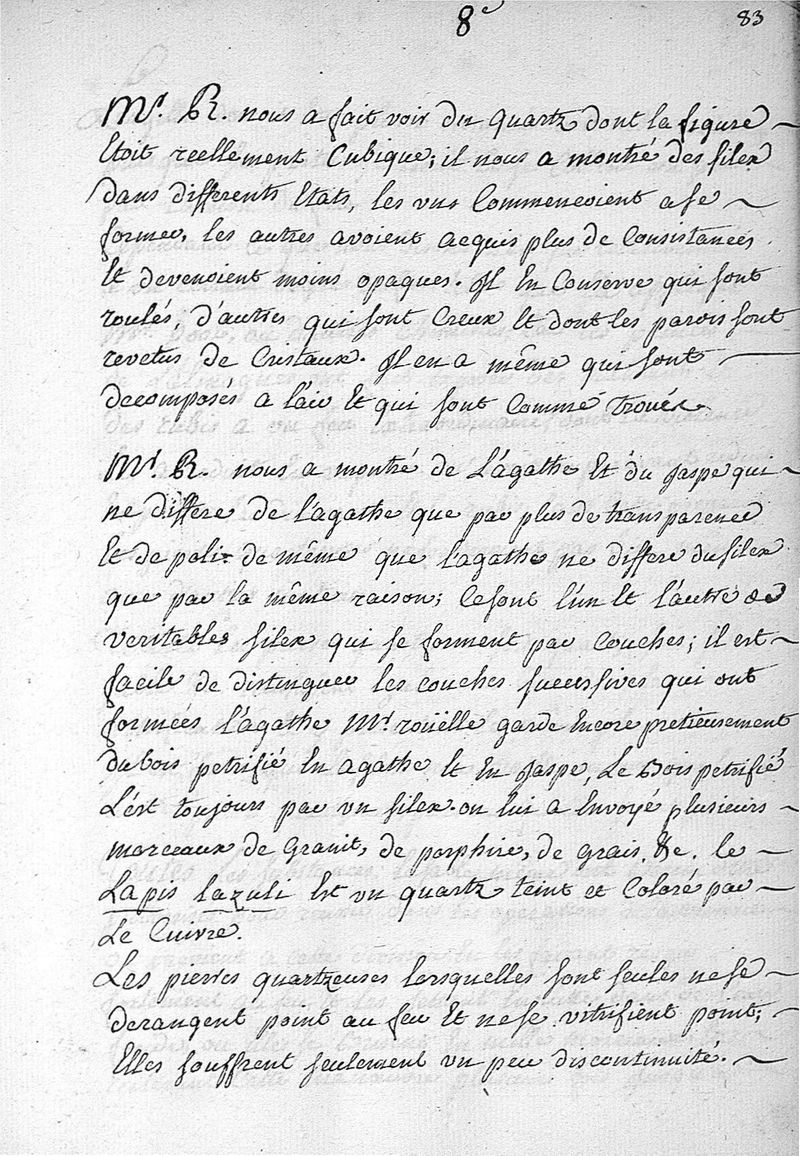 8e
83
Mr. R. nous a fait voir du quartz dont la figure
Etoit reellement Cubique; il nous a montré des silex
dans differents Etats, les uns Commencoient a se
former, les autres avoient acquis plus de Consistances
Et devenoient moins opaques. Il En Conserve qui sont
roulés, d'autres qui sont Creux Et dont les parois sont
revetus de Cristaux. Il en a même qui sont
decomposés a l'air Et qui sont Comme troués.
Mr. R. nous a montré de L'agathe Et du Jaspe qui
ne differe de l'agathe que par plus de transparence
Et de poli. de même que l'agathe ne differe du silex
que par la même raison; Ce sont l'un Et l'autre de
veritables silex qui se forment par Couches; il est
facile de distinguer les couches successives qui ont
formées l'agathe Mr. roüelle garde Encore pretieusement
du bois petrifié En agathe Et En Jaspe, Le Bois petrifié
L'est toujours par un silex. on lui a Envoyé plusieurs
morceaux de Granit, de porphire, de grais, &c. le
Lapis lazuli Est un quartz teint et Coloré par
Le Cuivre.
Les pierres quartzeuses lorsquelles sont seules ne se
derangent point au feu Et ne se vitrifient point;
Elles souffrent seulement un peu discontinuité.